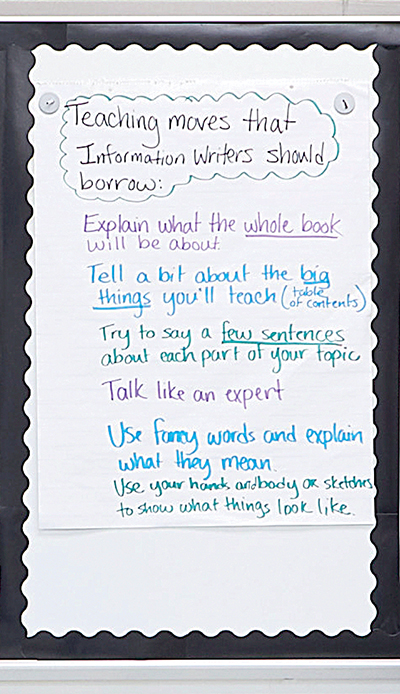 Teaching moves that
Information Writers should
borrow:
Explain what the whole book
will be about.
Tell a bit about the big
things you'll teach (table of contents)
Try to say a few sentences
about each part of your topic
Talk like an expert
Use fancy words and explain
what they mean.
Use your hands and body or sketches
to show what things look like.